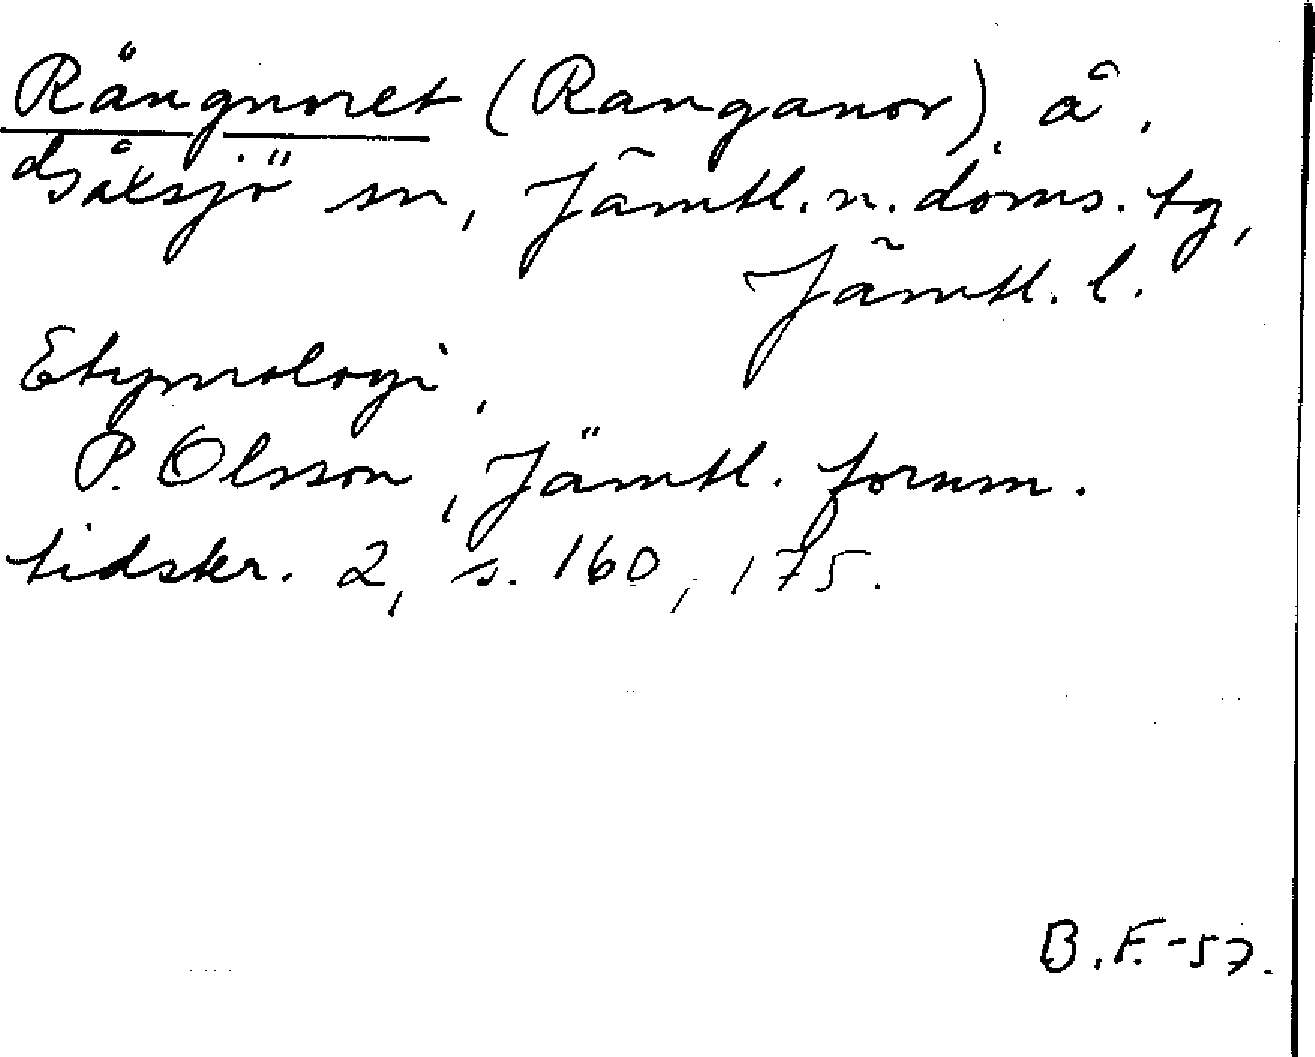 Rångnoret (Ranganor) å.
Gåxsjö sn, Jämtl. n. doms. tg,
Jämtl. l.
Etymologi.
P. Olsson, Jämtl. fornm.
tidskr. 2, s. 160, 175.
B.F.-57.